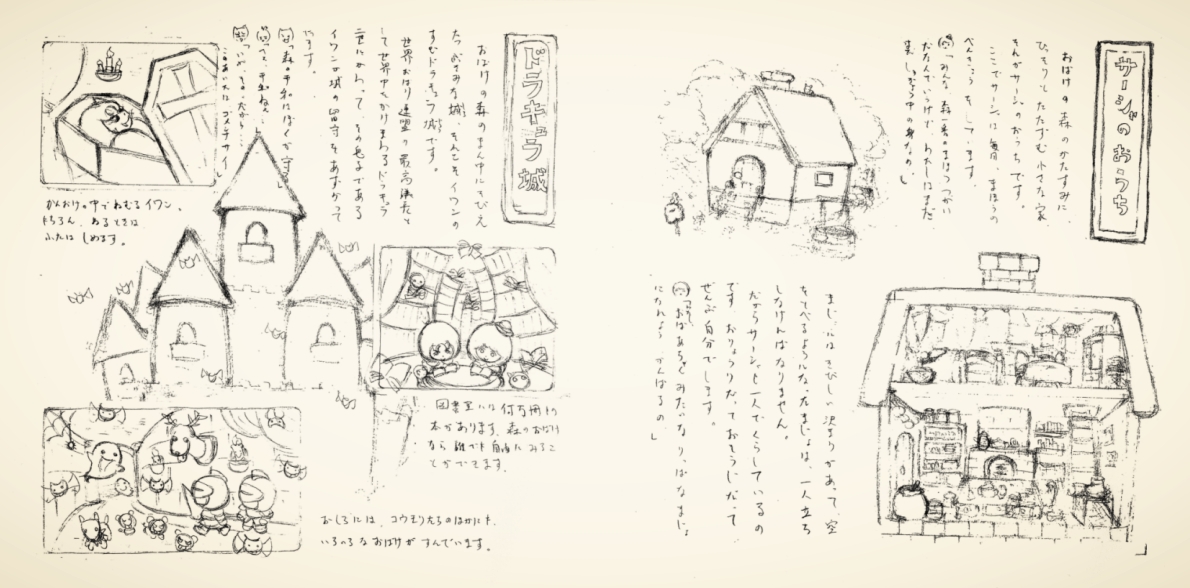 サージャのおうち
おばけの森のかたすみに、
ひっそりとたたずむ小さな家
さんがサージャのおうちです。
ここでサージャは毎日、まほうの
べんきょうをしています。
「みんな、森一番のまほうつかい
だなんていうけど、わたしはまだ
まじょには きびしい決まりがあって、空
をとべるようになったまじょは、一人立ち
しなければなりません。
だからサージャも一人でくらしているの
です。おりょうりだって おそうじだって
ぜんぶ自分でします。
「おばあちゃんみたいな りっぱなまじょ
になれるよう がんばるの。」
ドラキュラ城
おばけの森のまん中にそびえ
たつ 城。そんなイワンの
すむドラキュラ城です。
世界おばけ連盟の最高
して世界中をとびまわるドラキュラ
にかわって、その息子である
イワンが城の留守をあずかって
います。
「森の平和はぼくが守る」
かんおけの中でねむるイワン。
もちろん、ねるときは
ふたは しめます。
図書室には 何万冊もの
本があります。森のおばけ
なら 誰でも 自由に みるこ
とができます。
おしろには、コウモリたちのほかにも、
いろいろなおばけが すんでいます。